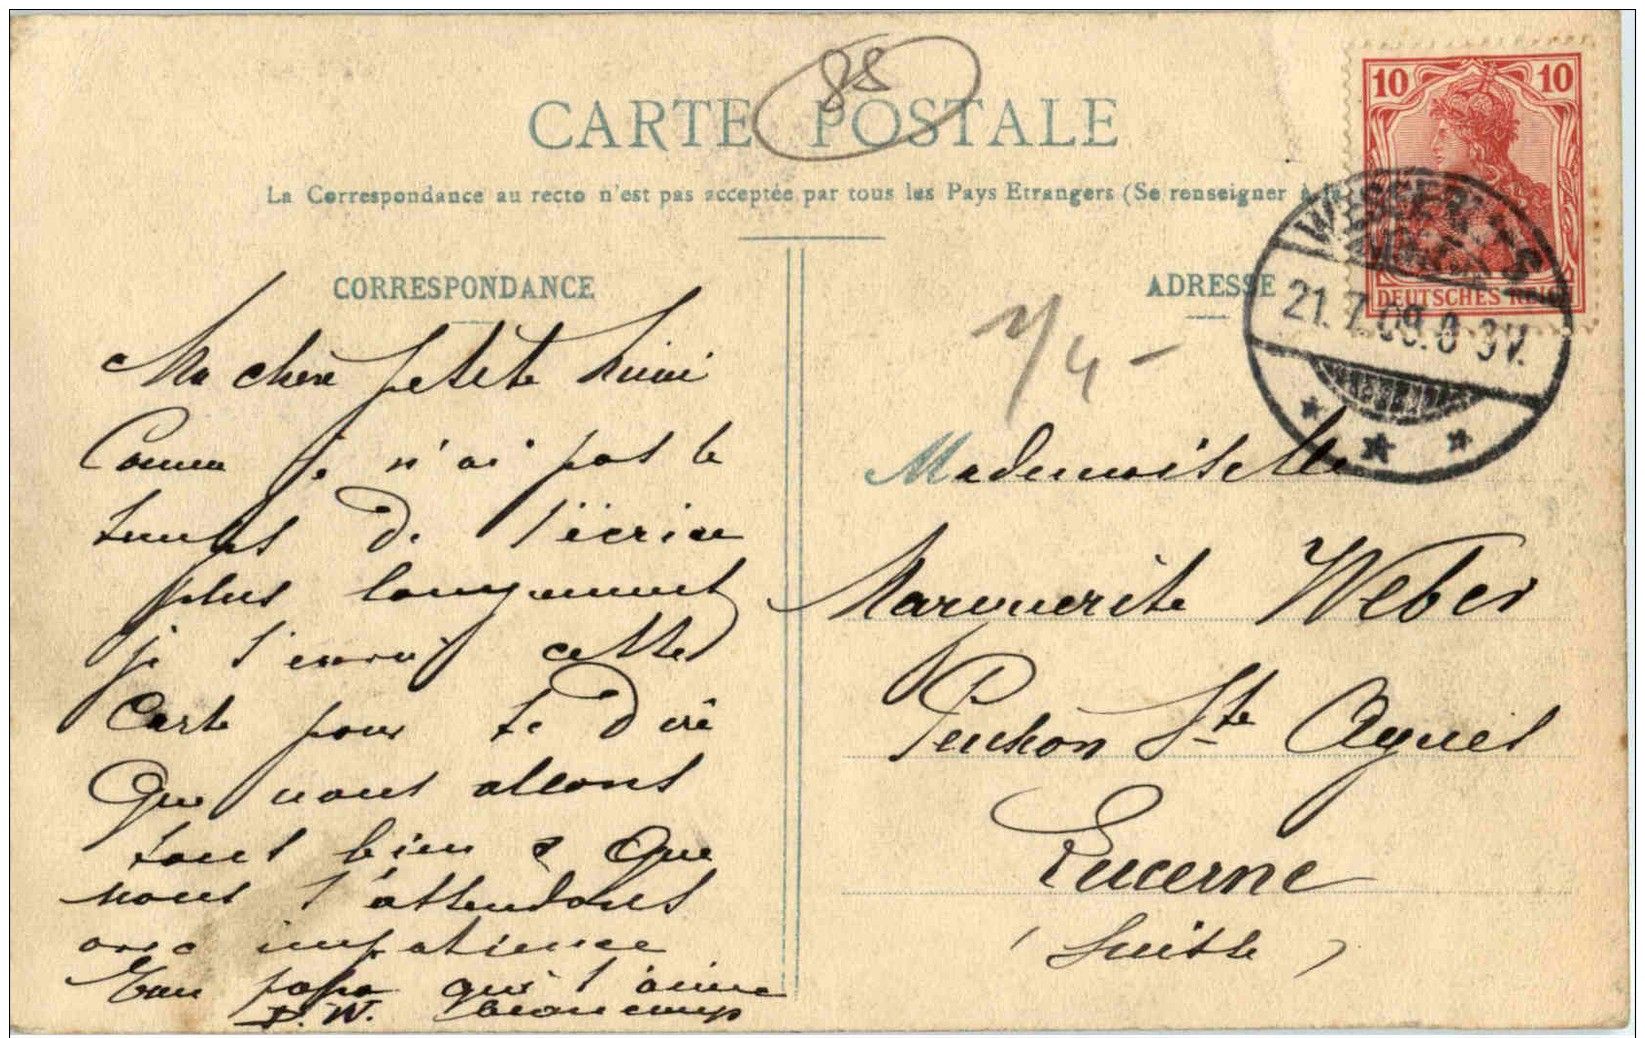 88
CARTE POSTALE
La Correspondance au recto n'est pas acceptée par tous les Pays Etrangers (Se renseigner à la
CORRESPONDANCE
Ma chère petite
Comme je n'ai pas le
temps de t'écrire
plus longuement
je t'envoi cettes
Carte pour te Dire
Que nous allons
tous bien & Que
nous t'attendons
avec impatience
Ton papa qui t'aime
beaucoup
ADRESSE
1/4-
Mademoiselle
Marguerite Weber
Pention Ste Agnes
Lucerne
(Suisse)
10 10
DEUTSCHES REICH
21.7.09.8-9V.